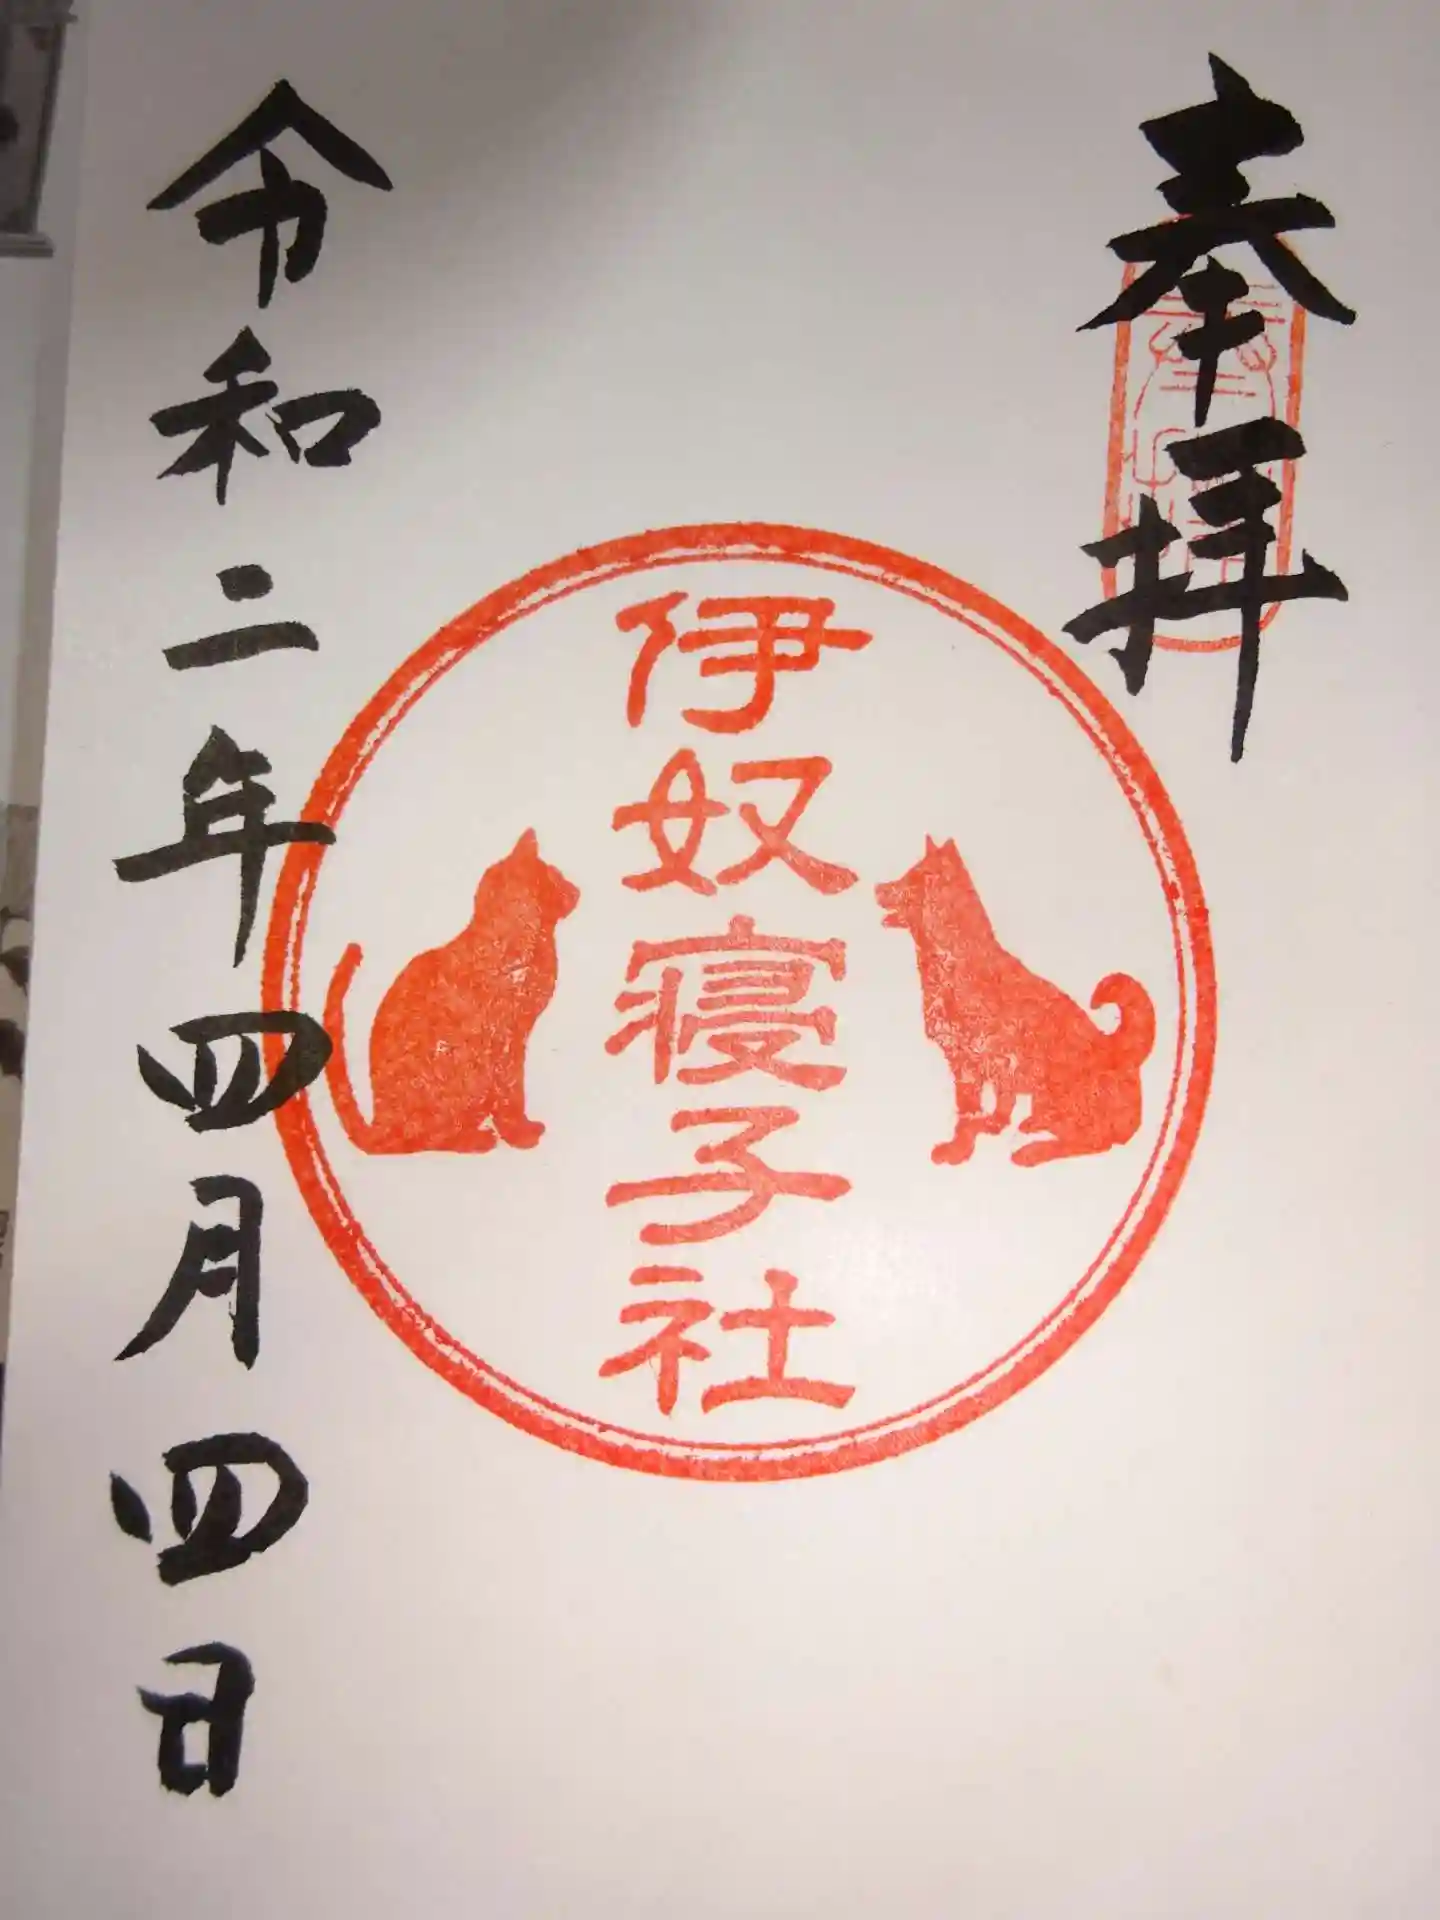 奉拝
伊奴寝子社
令和二年四月四日